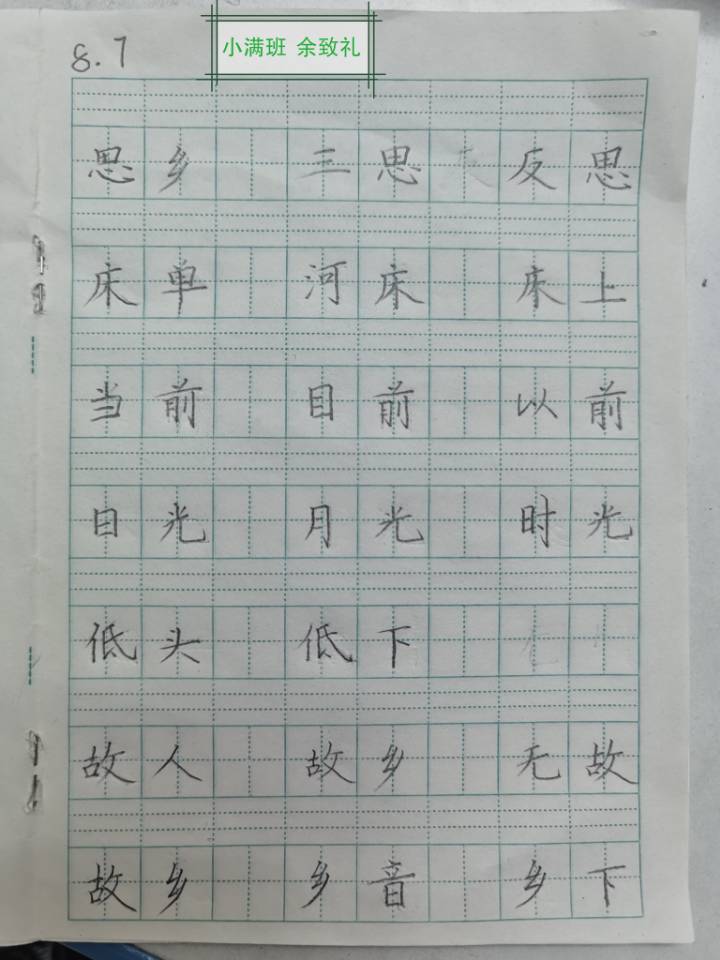 小满班 余致礼
8.7
思乡 三思 反思
床单 河床 床上
当前 目前 以前
日光 月光 时光
低头 低下
故人 故乡 无故
故乡 乡音 乡下